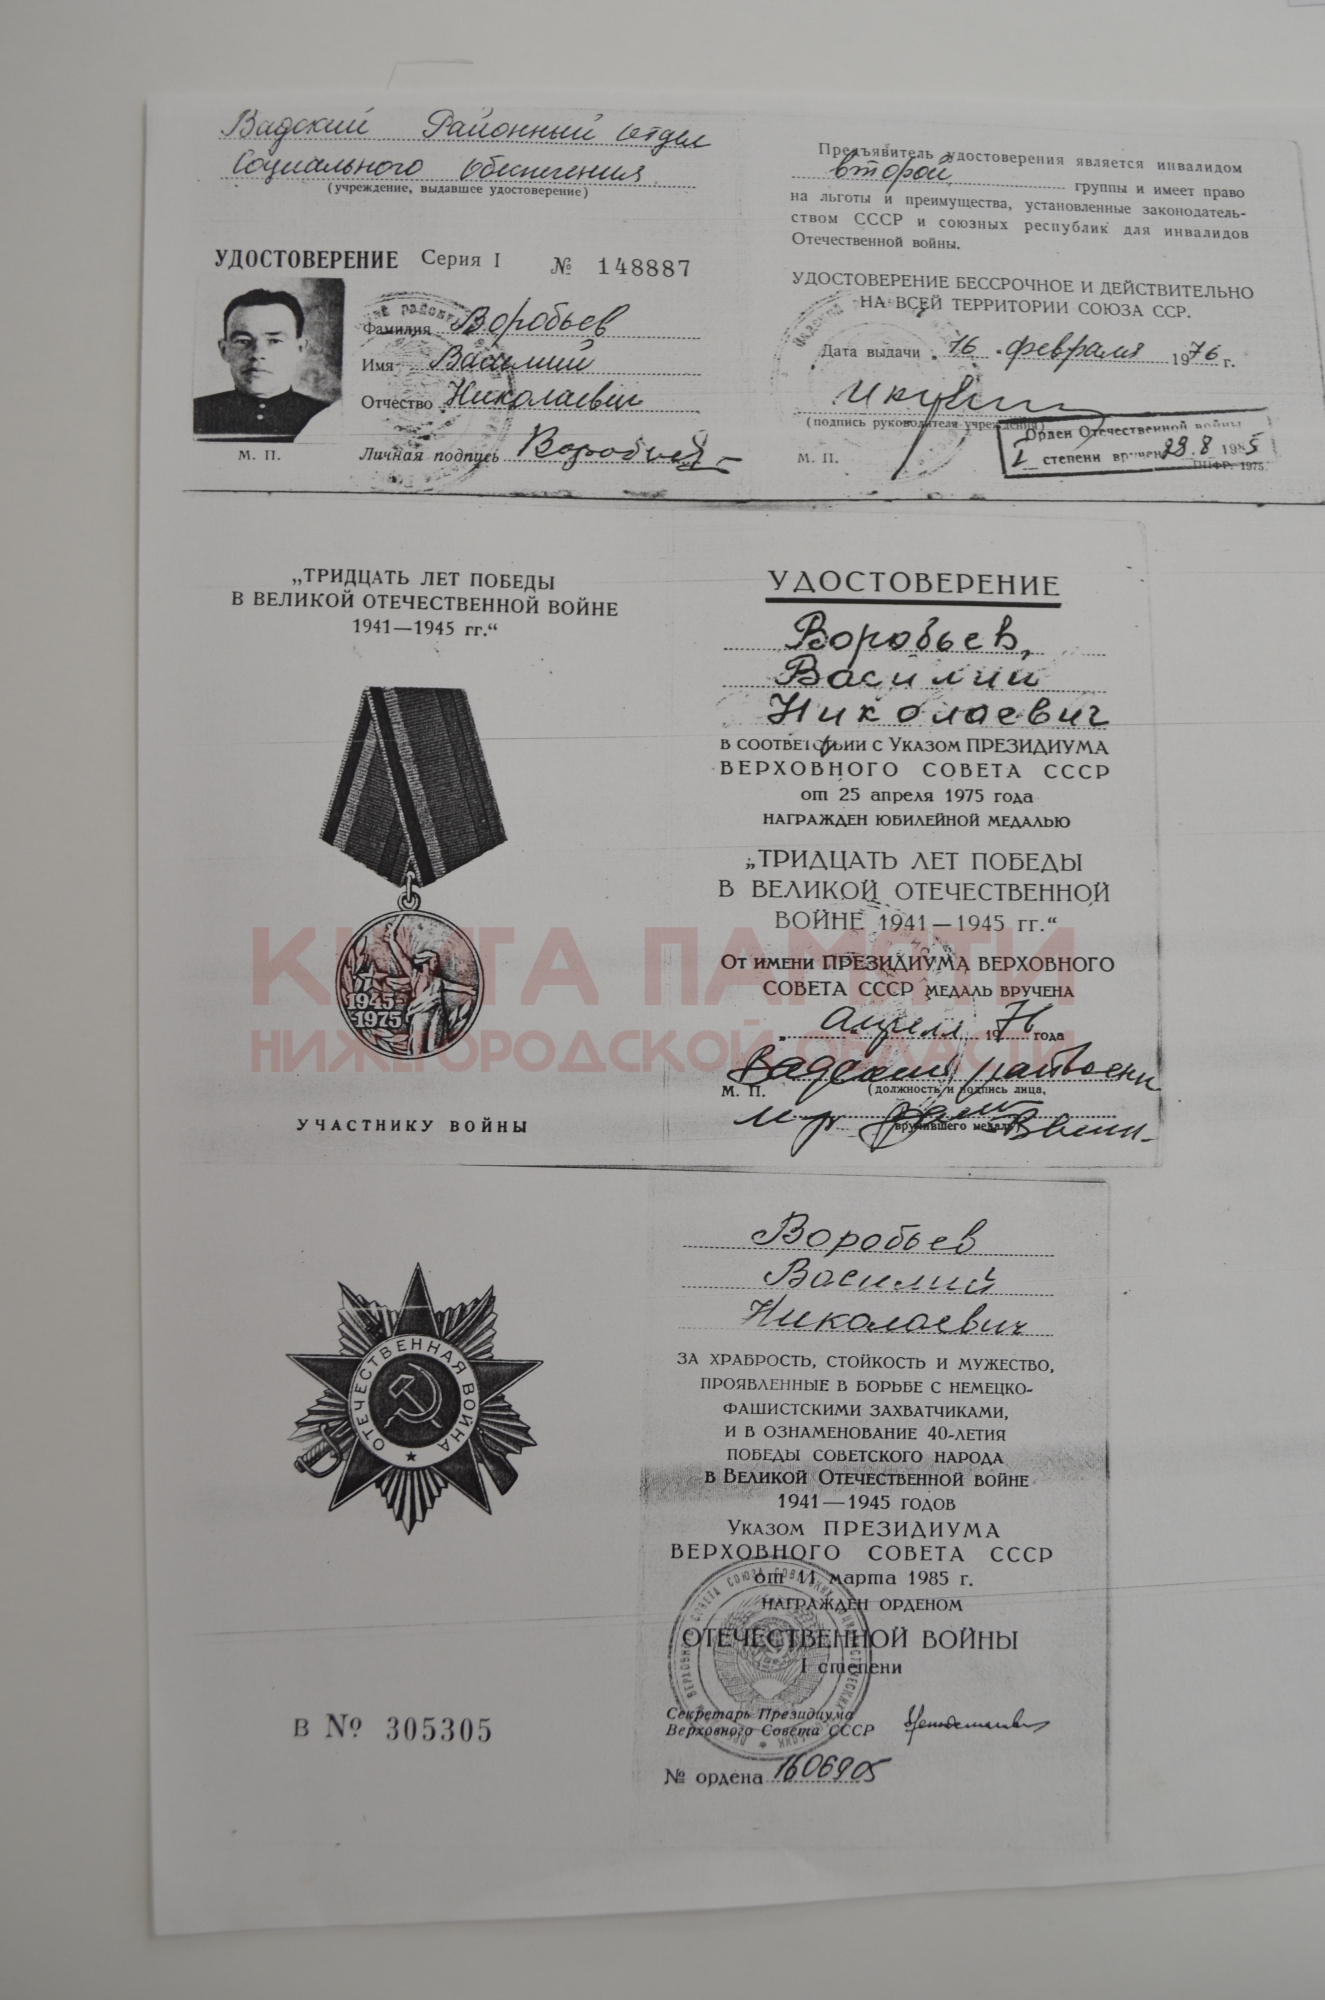 Вадский Районный отдел
Социального обеспечения
(учреждение, выдавшее удостоверение)
УДОСТОВЕРЕНИЕ Серия I № 148887
Фамилия Воробьев
Имя Василий
Отчество Николаевич
М. П. Личная подпись Воробьев
Предъявитель удостоверения является инвалидом
второй группы и имеет право
на льготы и преимущества, установленные законодатель-
ством СССР и союзных республик для инвалидов
Отечественной войны.
УДОСТОВЕРЕНИЕ БЕССРОЧНОЕ И ДЕЙСТВИТЕЛЬНО
НА ВСЕЙ ТЕРРИТОРИИ СОЮЗА ССР.
Дата выдачи 16 февраля 1976 г.
(подпись руководителя учреждения)
М. П.
Орден Отечественной войны
I степени вручен 23.8 1985
1975
„ТРИДЦАТЬ ЛЕТ ПОБЕДЫ
В ВЕЛИКОЙ ОТЕЧЕСТВЕННОЙ ВОЙНЕ
1941—1945 гг.“
1945
1975
УЧАСТНИКУ ВОЙНЫ
УДОСТОВЕРЕНИЕ
Воробьев,
Василий
Николаевич
В СООТВЕТСТВИИ С УКАЗОМ ПРЕЗИДИУМА
ВЕРХОВНОГО СОВЕТА СССР
от 25 апреля 1975 года
НАГРАЖДЕН ЮБИЛЕЙНОЙ МЕДАЛЬЮ
„ТРИДЦАТЬ ЛЕТ ПОБЕДЫ
В ВЕЛИКОЙ ОТЕЧЕСТВЕННОЙ
ВОЙНЕ 1941—1945 гг.“
ОТ ИМЕНИ ПРЕЗИДИУМА ВЕРХОВНОГО
СОВЕТА СССР МЕДАЛЬ ВРУЧЕНА
апреля 1976 года
Вадский райвоенк
М. П. (должность и подпись лица,
вручившего медаль)
КНИГА ПАМЯТИ
НИЖЕГОРОДСКОЙ ОБЛАСТИ
ОТЕЧЕСТВЕННАЯ ВОЙНА
В № 305305
Воробьев
Василий
Николаевич
ЗА ХРАБРОСТЬ, СТОЙКОСТЬ И МУЖЕСТВО,
ПРОЯВЛЕННЫЕ В БОРЬБЕ С НЕМЕЦКО-
ФАШИСТСКИМИ ЗАХВАТЧИКАМИ,
И В ОЗНАМЕНОВАНИЕ 40-ЛЕТИЯ
ПОБЕДЫ СОВЕТСКОГО НАРОДА
В ВЕЛИКОЙ ОТЕЧЕСТВЕННОЙ ВОЙНЕ
1941—1945 ГОДОВ
УКАЗОМ ПРЕЗИДИУМА
ВЕРХОВНОГО СОВЕТА СССР
от 11 марта 1985 г.
НАГРАЖДЕН ОРДЕНОМ
ОТЕЧЕСТВЕННОЙ ВОЙНЫ
I степени
Секретарь Президиума
Верховного Совета СССР
№ ордена 1606905